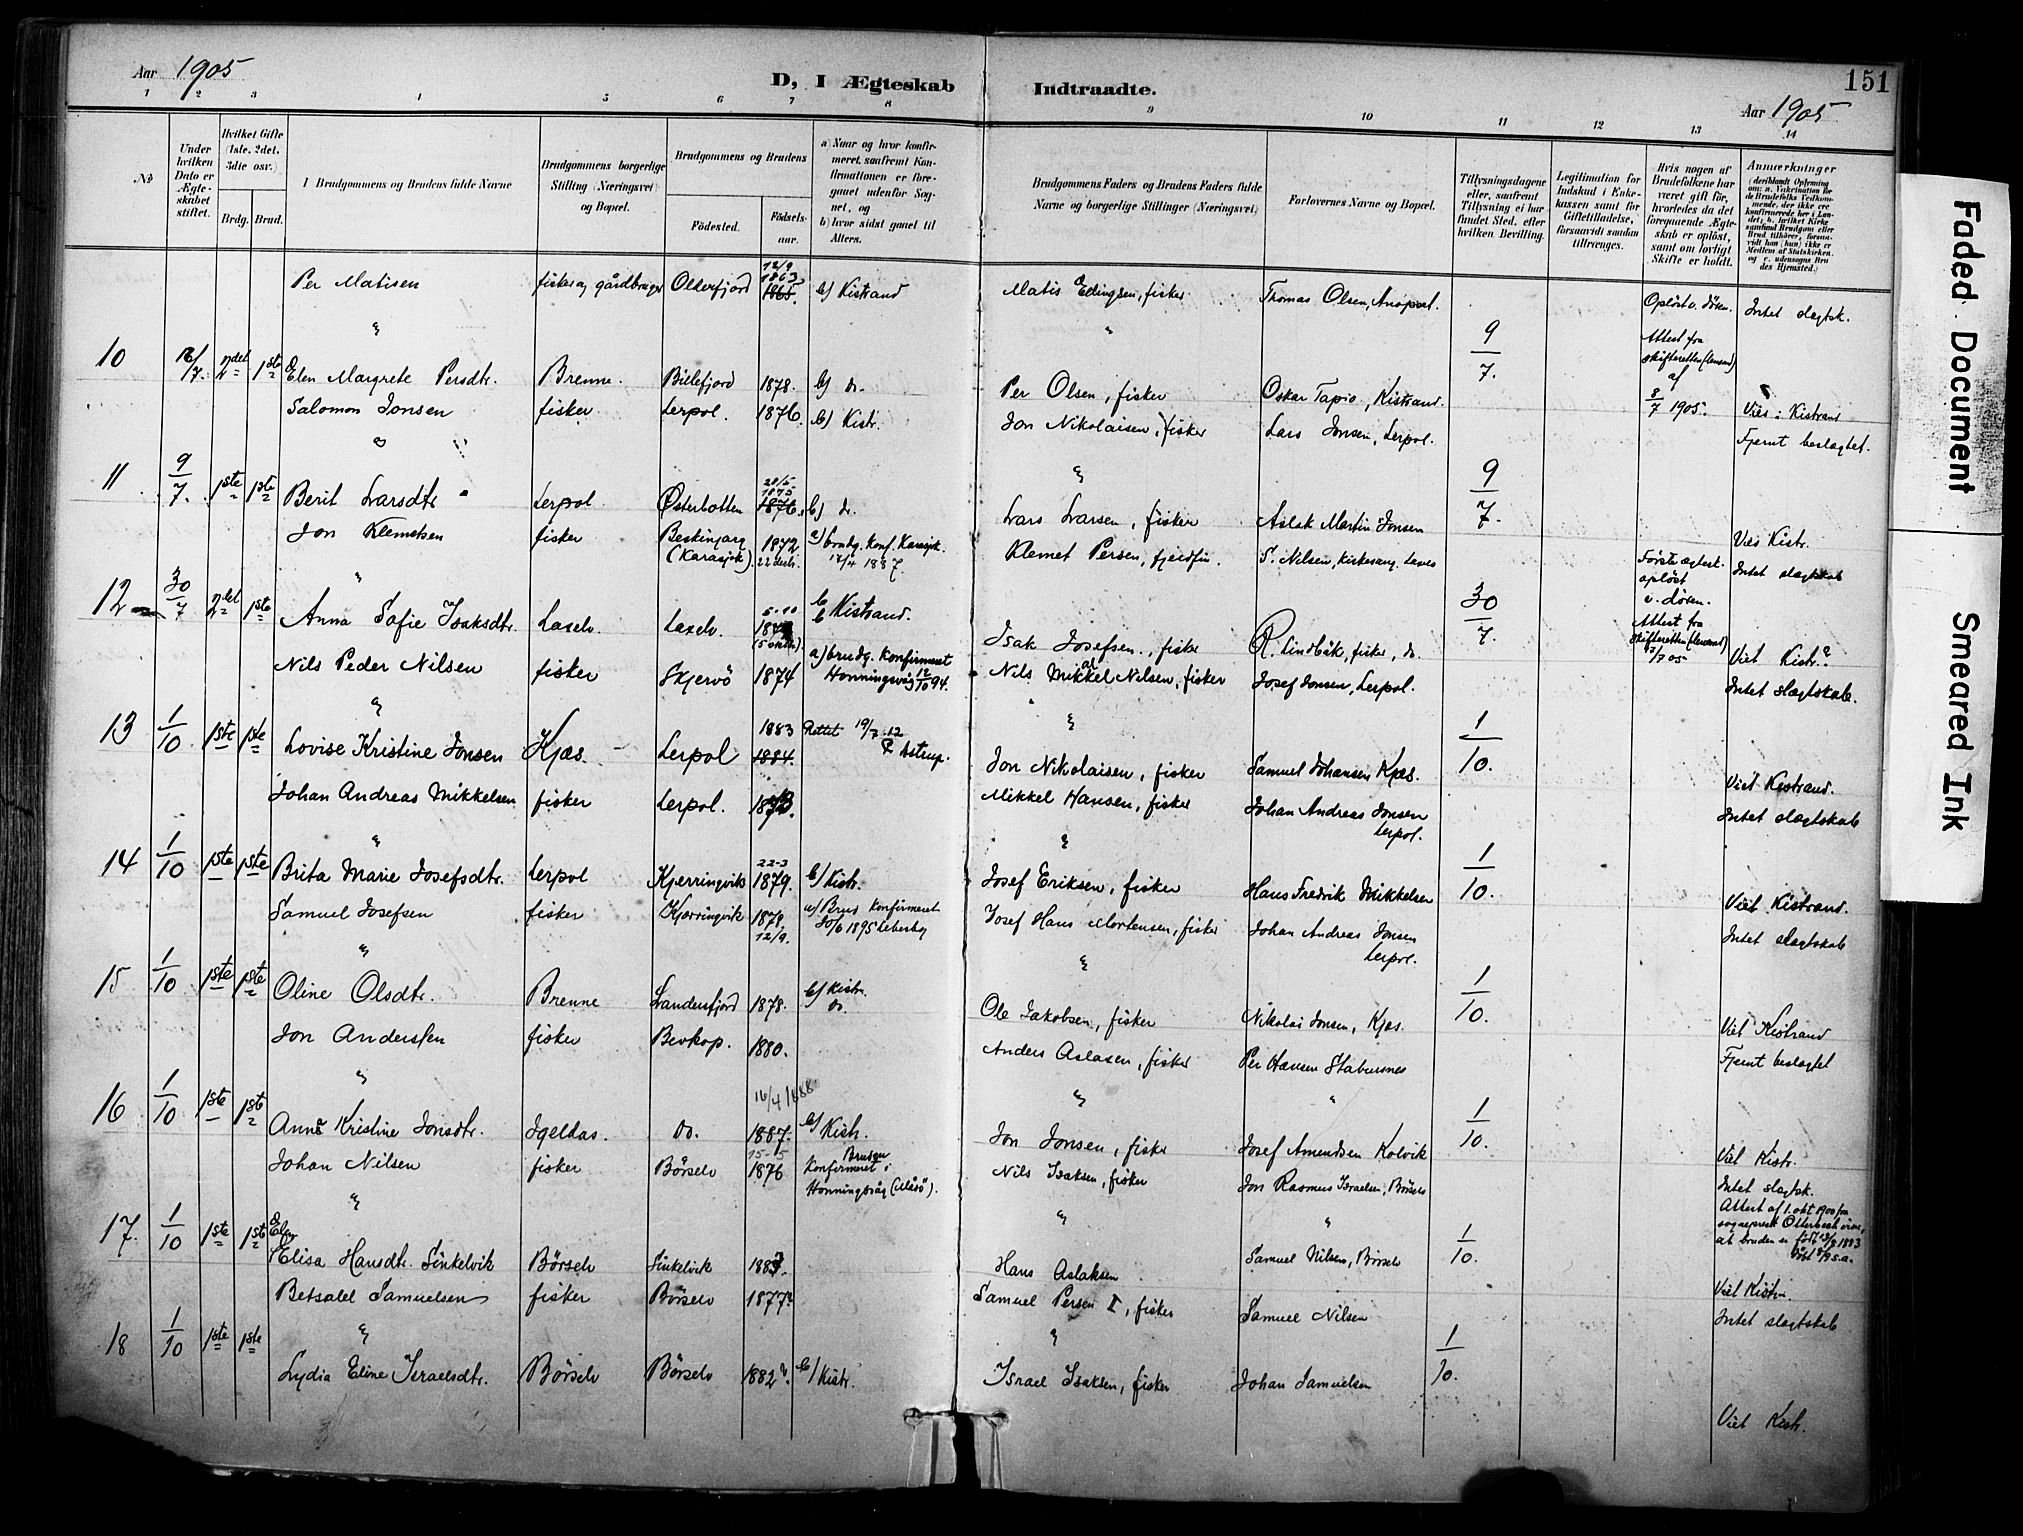 Aar 1905
D, I Ægteskab Indtraadte.
151
Aar 1905
1 2 3 4 5 6 7 8 9 10 11 12 13 14
No
Under hvilken Dato er Ægteskabet stiftet.
Hvilket Gifte (1ste, 2det, 3die osv.)
Brdg. Brud.
I Brudgommens og Brudens fulde Navne
Brudgommens borgerlige Stilling (Næringsvei) og Bopæl.
Brudgommens og Brudens
Födested. Födsels-aar.
a) Naar og hvor konfirmeret, saafremt Konfirmationen er foregaaet udenfor Sognet, og
b) hvor sidst gaaet til Alters.
Brudgommens Faders og Brudens Faders fulde Navne og borgerlige Stillinger (Næringsvei)
Forlovernes Navne og Bopæl.
Tillysningsdagene eller, saafremt Tillysning ei har fundet Sted, efter hvilken Bevilling.
Legitimation for Indskud i Enkekassen samt for Giftetilladelse, forsaavidt saadan tiltrænges.
Hvis nogen af Brudefolkene har været gift för, hvorledes da det foregaaende Ægteskab er oplöst, samt om lovligt Skifte er holdt.
Anmærkninger
Per Matisen fisker og gårdbruger Olderfjord 12/9 1863 1865. b) Kistrand Matis Edingsen, fisker Thomas Olsen, Oplöst v. döden. Intet slægtsk.
10 16/7. 2det 1ste Elen Margrete Persdtr. Brenne. Billefjord 1878. b) do. Per Olsen, fisker Oskar Tapio, Kistrand. 9/7. Attest fra skifteretten (lensmand) af 8/7 1905. Viet i Kistrand
Salomon Jonsen fisker Lerpol. 1876. b) Kistr. Jon Nikolaisen, fisker Lars Jonsen, Lerpol. Fjernt beslægtet.
11 9/7. 1ste 1ste Berit Larsdtr. Lerpol Østerbotten 28/5 1875 1876. b) do. Lars Larsen, fisker Aslak Martin Jonsen 9/7. Viet Kistr.
Jon Klemetsen fisker (Karasjok). 1872 22 decbr. a) brudg. konf. Karasjok 12/4 1887. Klemet Persen, fjeldfin. S. Nilsen, kirkesang. Laxelv Første ægtesk. oplöst v. döden. Intet slægtskab
12 30/7 2det 1ste Anna Sofie Isaksdtr. Laxelv. Laxelv. b) Kistrand. Isak Josefsen, fisker R. Lindbäk, fisker, do. 30/7. Attest fra skifteretten (lensmand) Viet Kistr.
Nils Peder Nilsen fisker Skjervö 1874 a) brudg. konfirmeret Honningsvåg 12/10 94. Nils Mikkel Nilsen, fisker Josef Jonsen, Lerpol. Intet slægtskab.
13 1/10 1ste 1ste Lovise Kristine Jonsen Kjæs. Lerpol 1883 1884. Rettet 19/7 12 P. Astrup. Jon Nikolaisen, fisker Samuel Johansen Kjæs. 1/10. Viet Kistrand.
Johan Andreas Mikkelsen fisker Lerpol. 1873. Mikkel Hansen, fisker Johan Andreas Jonsen Lerpol. Intet slægtskab
14 1/10 1ste 1ste Brita Marie Josefsdtr. Lerpol Kjerringvik 22-3 1879. b) Kistr. Josef Eriksen, fisker Hans Fredrik Mikkelsen 1/10. Viet Kistrand.
Samuel Josefsen fisker Kjerringvik 1878. 12/9. a) Brud konfirmeret 30/6 1895 Lebesby Josef Hans Mortensen, fisker Johan Andreas Jonsen Lerpol. Intet slægtskab
15 1/10 1ste 1ste Oline Olsdtr. Brenne Landersfjord 1878. b) Kistr. do. Ole Jakobsen, fisker Nikolai Jonsen, Kjæs. 1/10. Viet Kistrand
Jon Anderssen fisker Bevkop. 1880. Anders Aslasen, fisker Per Hansen Stabursnes Fjernt beslægtet
16 1/10 1ste 1ste Anne Kristine Jonsdtr. Igeldas. do. 16/4 1888 1887. b) Kistr. Jon Jonsen, fisker Josef Amundsen Kolvik 1/10. Viet Kistr.
Johan Nilsen fisker Börselv 15-5 1876 Bruden konfirmeret i Honningsvåg (Måsö). Nils Isaksen, fisker Jon Rasmus Israelsen, Börselv Intet slægtsk.
17. 1/10 1ste 1ste Elen Elisa Hansdtr. Sinkelvik Börselv Sinkelvik 1883. Hans Aslaksen Samuel Nilsen, Börselv 1/10. Attest af 1. okt 1900 fra sognepræst Otterbech at bruden er född 13/8 1883 Viet Kistr.
Betsalel Samuelsen fisker Börselv 1877? Samuel Persen I, fisker Samuel Nilsen Intet slægtskab
18 1/10 1ste 1ste Lydia Eline Israelsdtr. Börselv Börselv 1882?. b) Kistr. Israel Isaksen, fisker Johan Samuelsen 1/10. Viet Kistr.
Faded Document
Smeared Ink